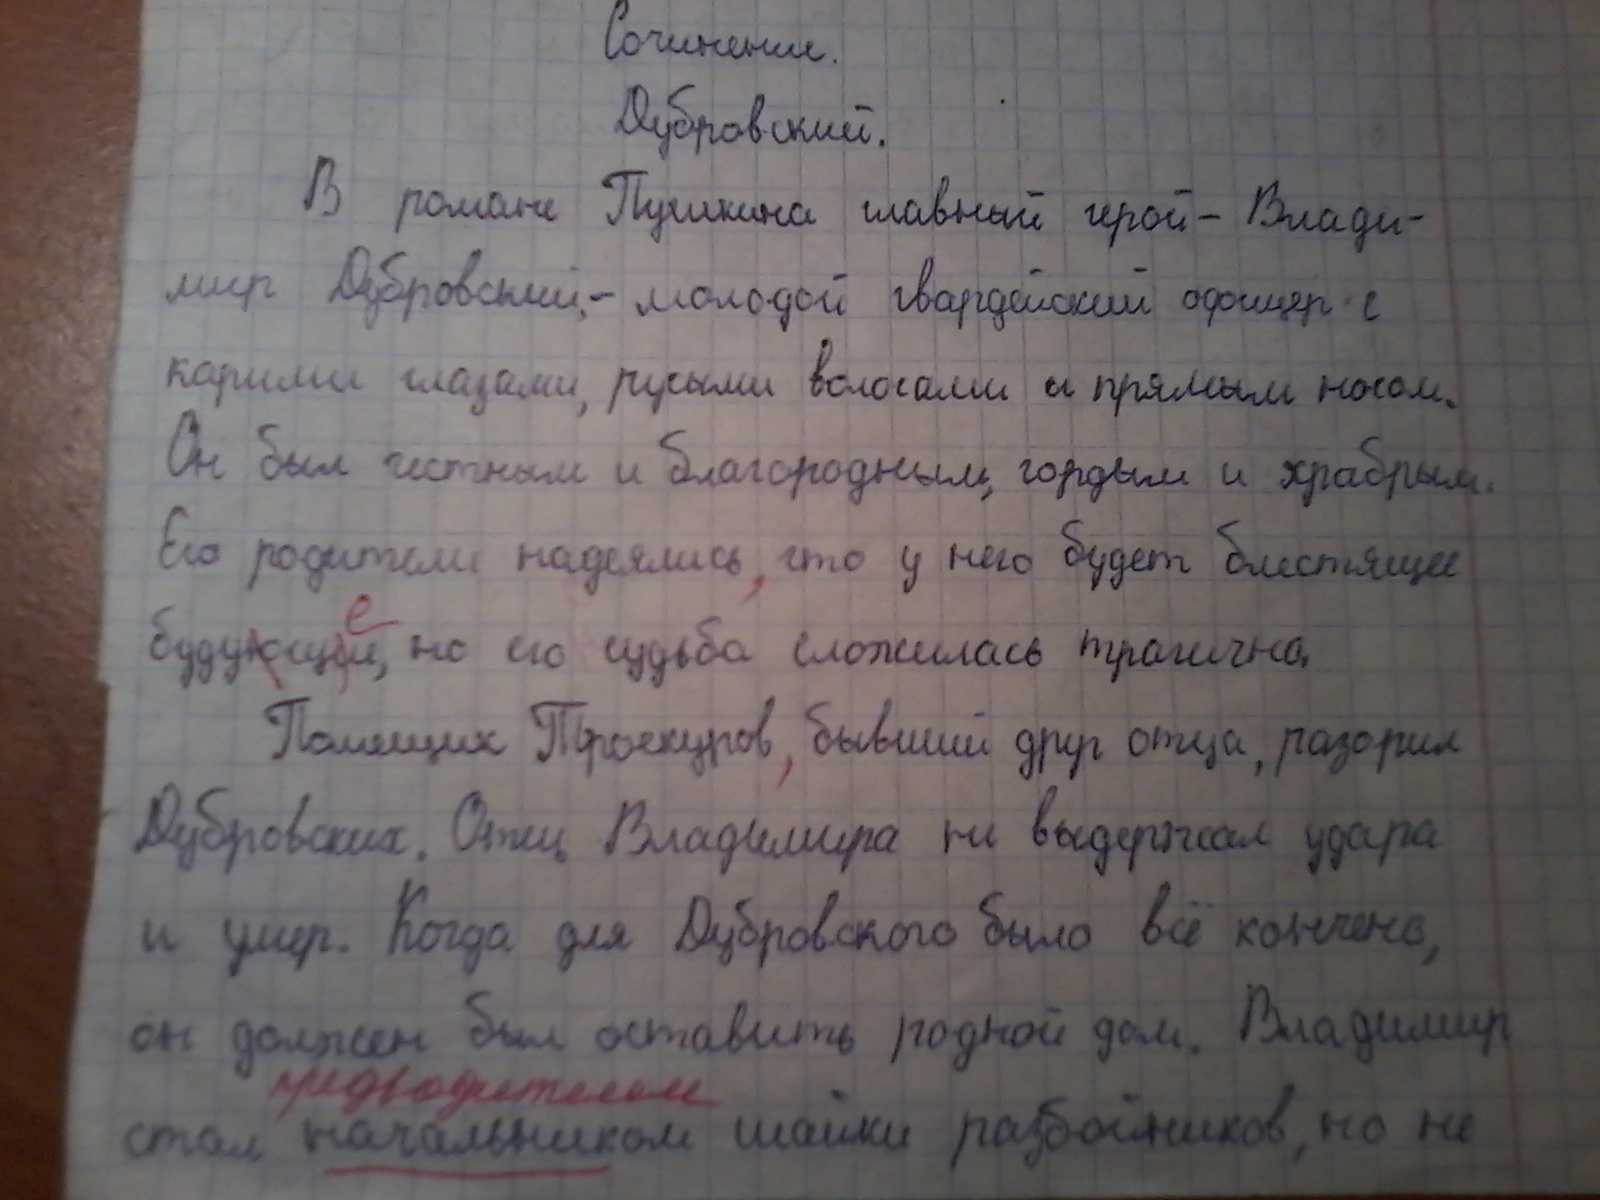 Сочинение.
Дубровский.
В романе Пушкина главный герой - Влади-
мир Дубровский, - молодой гвардейский офицер с
карими глазами, русыми волосами и прямым носом.
Он был честным и благородным, гордым и храбрым.
Его родители надеялись, что у него будет блестящее
е
но его судьба сложилась трагично.
Помещик Троекуров, бывший друг отца, разорил
Дубровских. Отец Владимира не выдержал удара
и умер. Когда для Дубровского было всё кончено,
он должен был оставить родной дом. Владимир
предводителем
стал начальником шайки разбойников, но не